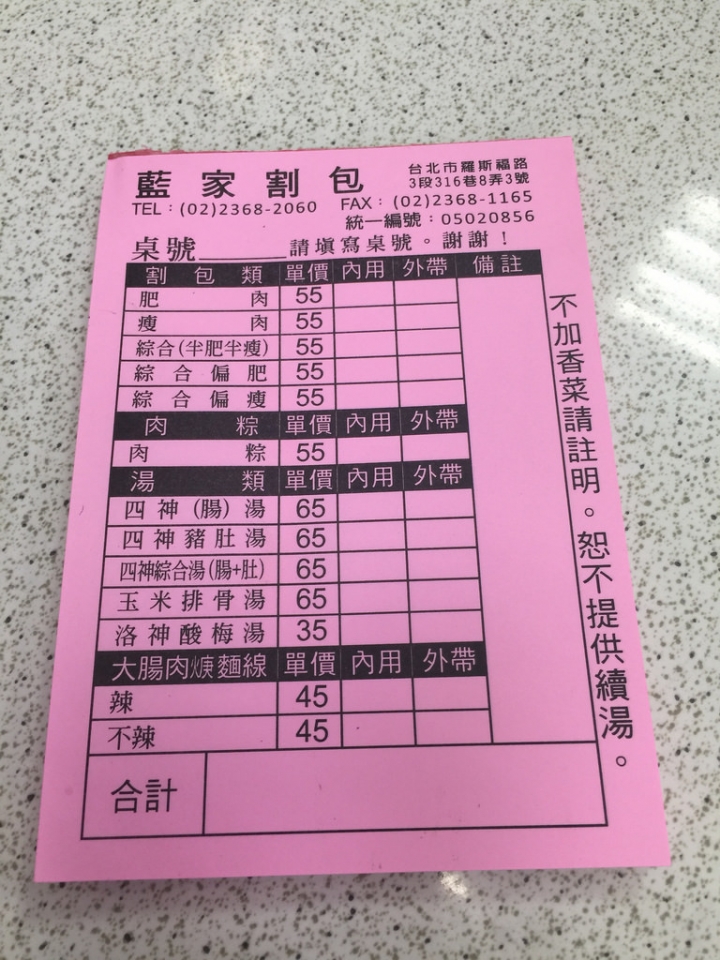 藍家割包
台北市羅斯福路
3段316巷8弄3號
TEL：(02)2368-2060 FAX：(02)2368-1165
統一編號：05020856
桌號______請填寫桌號。謝謝！
割包類 單價 內用 外帶 備註
肥肉 55
瘦肉 55
綜合(半肥半瘦) 55
綜合偏肥 55
綜合偏瘦 55
肉粽 單價 內用 外帶
肉粽 55
湯類 單價 內用 外帶
四神(腸)湯 65
四神豬肚湯 65
四神綜合湯(腸+肚) 65
玉米排骨湯 65
洛神酸梅湯 35
大腸肉焿麵線 單價 內用 外帶
辣 45
不辣 45
合計
不加香菜請註明。恕不提供續湯。